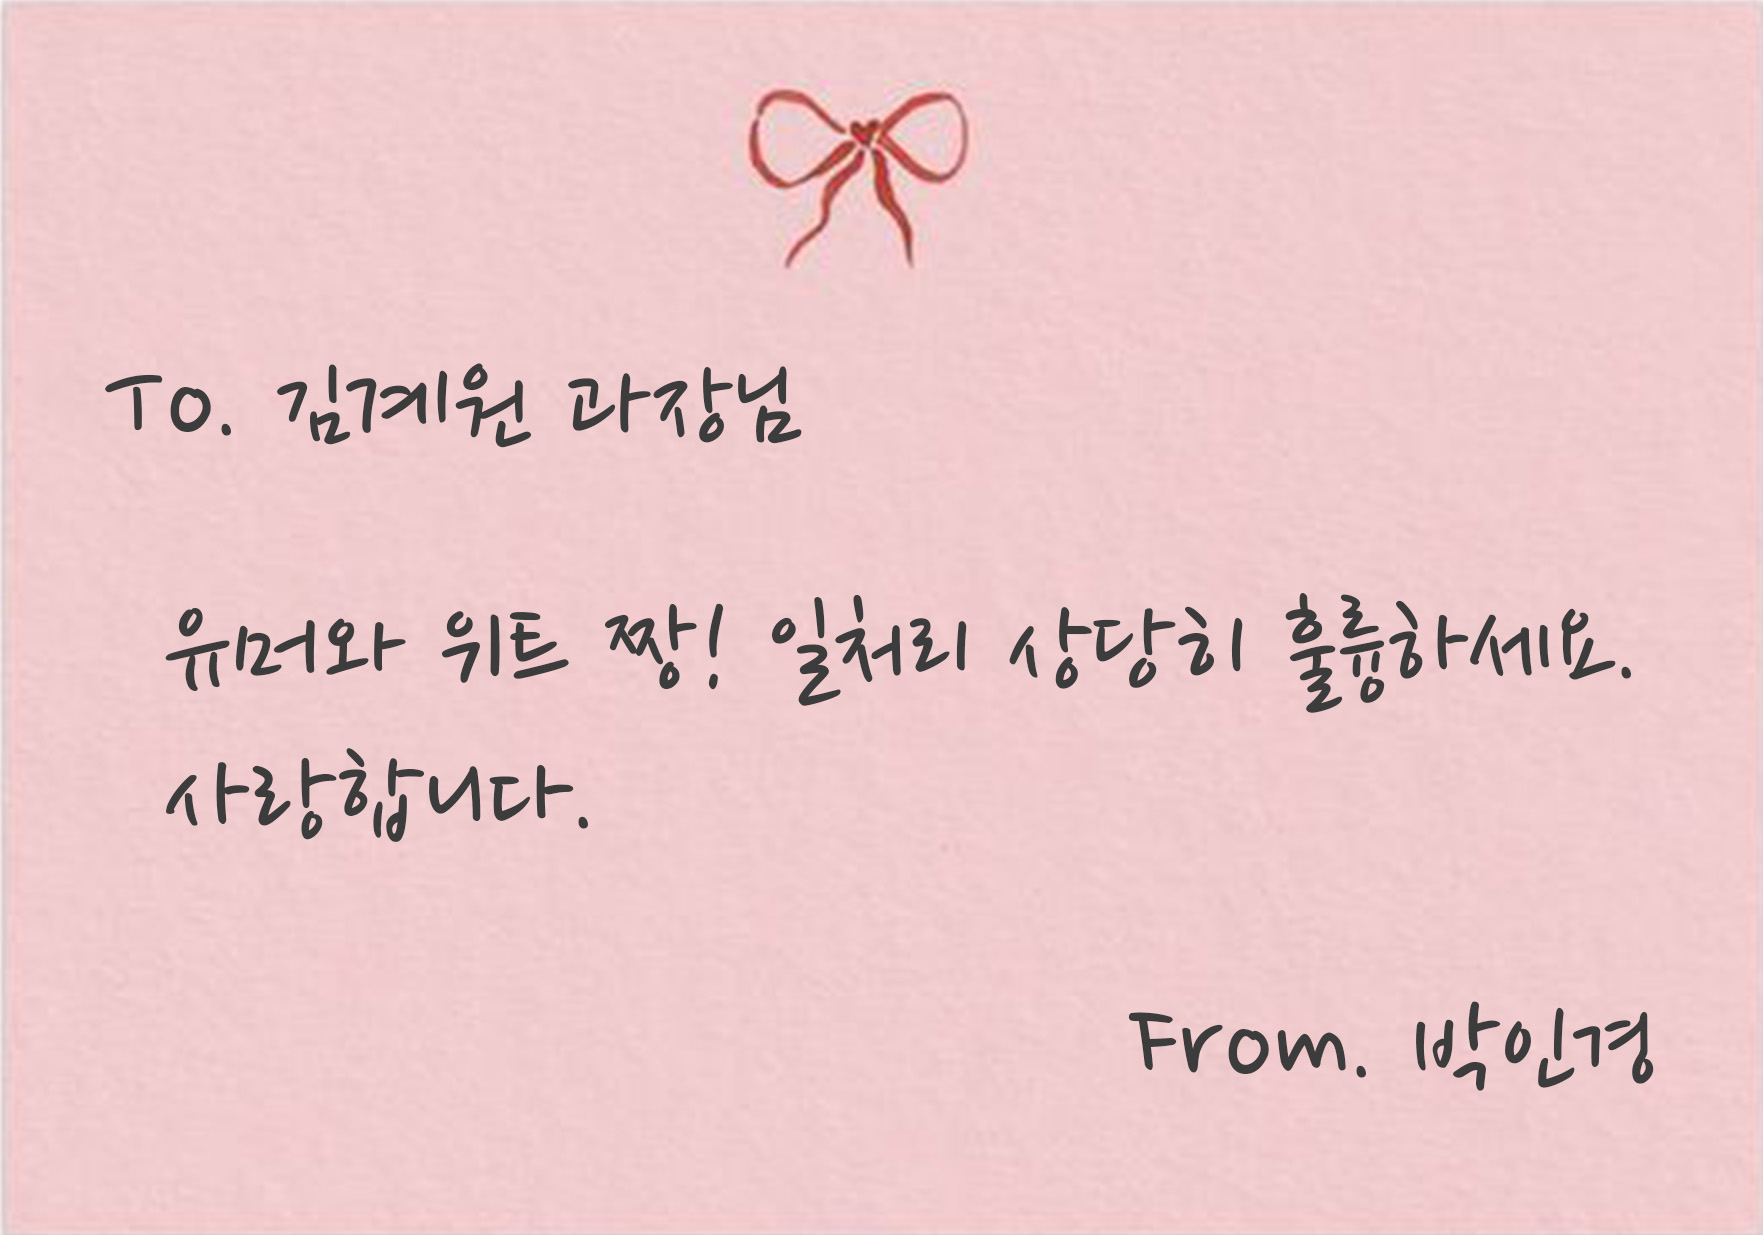 To. 김계원 과장님
유머와 위트 짱! 일처리 상당히 훌륭하세요.
사랑합니다.
From. 박인경